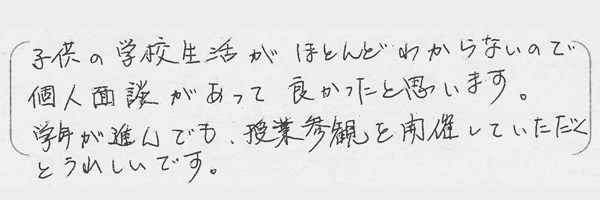 子供の学校生活がほとんどわからないので
個人面談があって良かったと思います。
学年が進んでも、授業参観を開催していただく
とうれしいです。